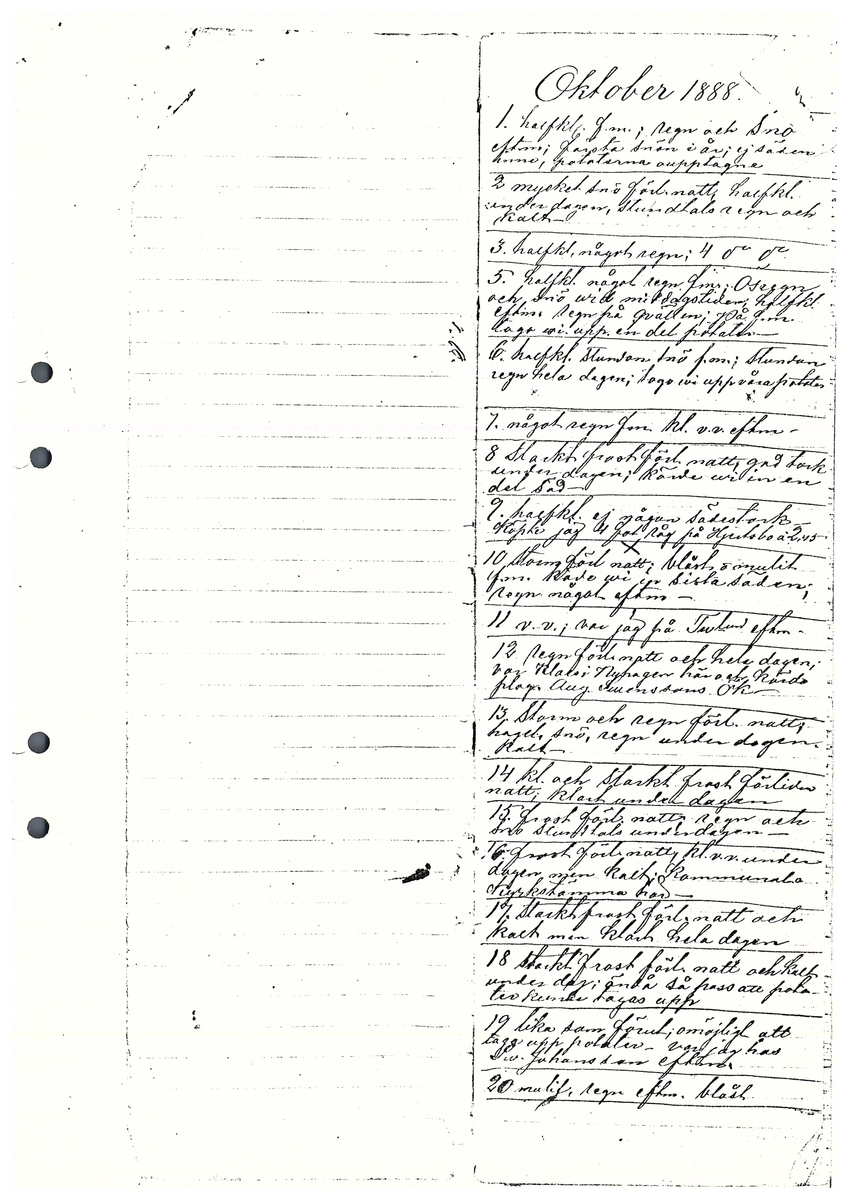 Oktober 1888.
1. halfkl. f.m.; regn och Snö
eftm; första snön i år; ej säden
inne, potaterna oupptagne
2 mycket snö förl. natt, halfkl.
under dagen, stundtals regn och
kalt—
3. halfkl. något regn; 4 do do
5. halfkl. något regn f.m; Ösregn
och snö wid middagstiden; halfkl.
eftm. regn på qvällen; på f.m.
togo wi upp en del potater—
6. halfkl. stundom snö f.m; stundom
regn hela dagen; togo wi upp våra potater
7. något regn f.m. kl. v.v. eftm—
8 Starkt frost förl. natt, god tork
under dagen; körde wi in en
del Säd—
9. halfkl. ej någon sädestork—
Köpte jag 4 fot råg på Hjertsbo à 2,45
10 Storm förl natt; blåst o mulit
f.m. körde wi in sista säden;
regn något eftm—
11 v.v.; var jag på eftm.
12. regn förl. natt och hela dagen;
var Klas i Nyhagen här och körde
plog. Aug. Swenssons Ök—
13. Storm och regn förl. natt;
hagel, snö, regn under dagen.
kalt—
14 kl. och starkt frost förliden
natt; klart under dagen
15. frost förl. natt, regn och
snö stundtals under dagen—
16. frost förl. natt, kl. v.v. under
dagen men kalt; Kommunala
Kyrkstämma här—
17. Starkt frost förl. natt och
kalt men klart hela dagen
18 starkt frost förl. natt och kalt
under dag; ändå så pass att pota-
ter kunde tagas upp
19 lika som förut; omöjligt att
taga upp potater— var jag hos
Sv. Johansson eftm.
20 mulit, regn eftm. blåst